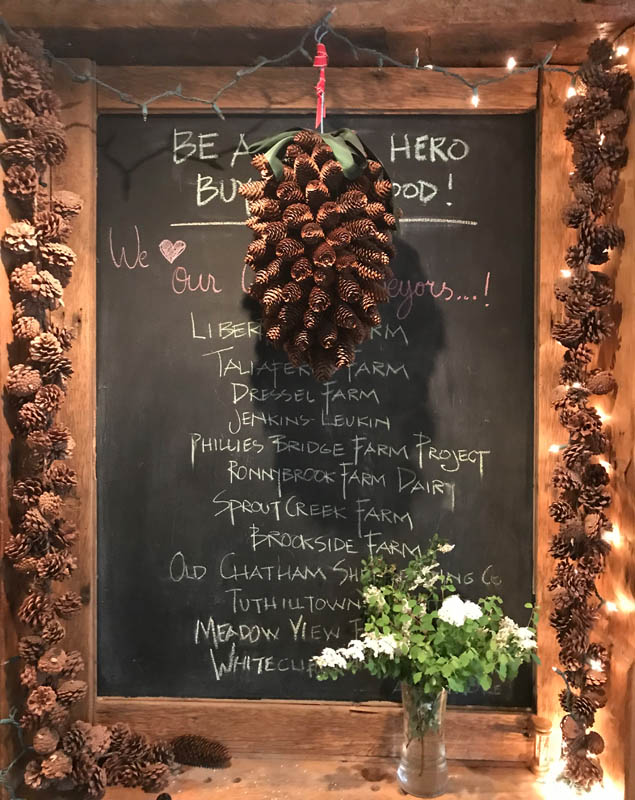 BE A HERO
BU OOD!
We ♡
our C eyors...!
LIBER FARM
TALIAFER FARM
DRESSEL FARM
JENKINS-LEUKIN
PHILLIES BRIDGE FARM PROJECT
RONNYBROOK FARM DAIRY
SPROUT CREEK FARM
BROOKSIDE FARM
OLD CHATHAM SH ING CO
TUTHILLTOWN
MEADOW VIEW F
WHITECLI